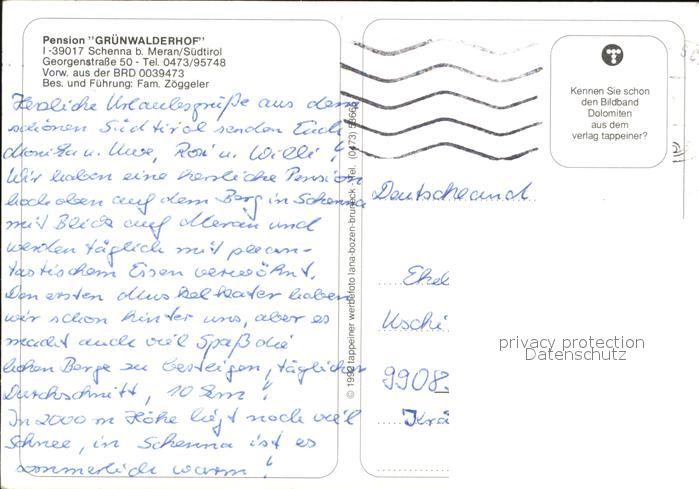 Pension "GRÜNWALDERHOF"
I -39017 Schenna b. Meran/Südtirol
Georgenstraße 50 - Tel. 0473/95748
Vorw. aus der BRD 0039473
Bes. und Führung: Fam. Zöggeler
Herzliche Urlaubsgrüße aus dem
schönen Südtirol senden Euch
Monika u. Uwe, Rosi u. Willi!
Wir haben eine herrliche Pension
hoch oben auf dem Berg in Schenna
mit Blick auf Meran und
werden täglich mit phan-
tastischem Essen verwöhnt.
Den ersten Muskelkater haben
wir schon hinter uns, aber es
macht auch viel Spaß die
hohen Berge zu besteigen, täglicher
Durchschnitt, 10 km!
In 2000 m Höhe liegt noch viel
Schnee, in Schenna ist es
sommerlich warm!
© 1992 tappeiner werbefoto lana-bozen-bruneck - tel. (0473)
Kennen Sie schon
den Bildband
Dolomiten
aus dem
verlag tappeiner?
Deutschland
Ehel
Uschi
9908
Krä
privacy protection
Datenschutz